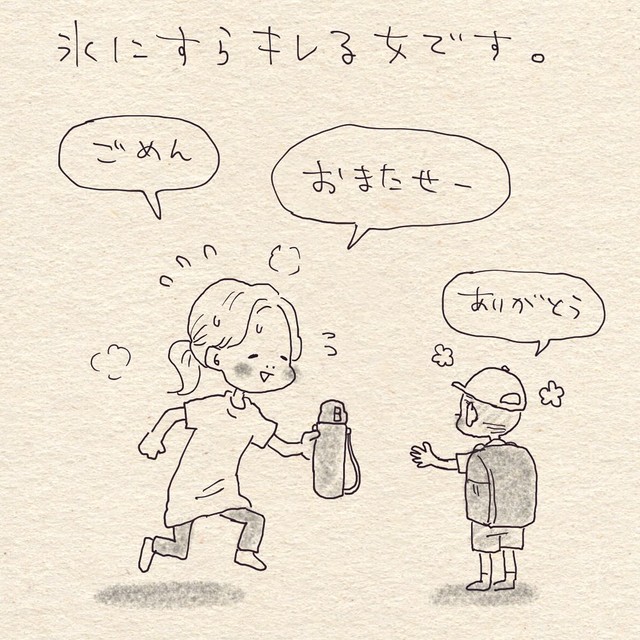 氷にすらキレる女です。
ごめん
おまたせー
ありがとう